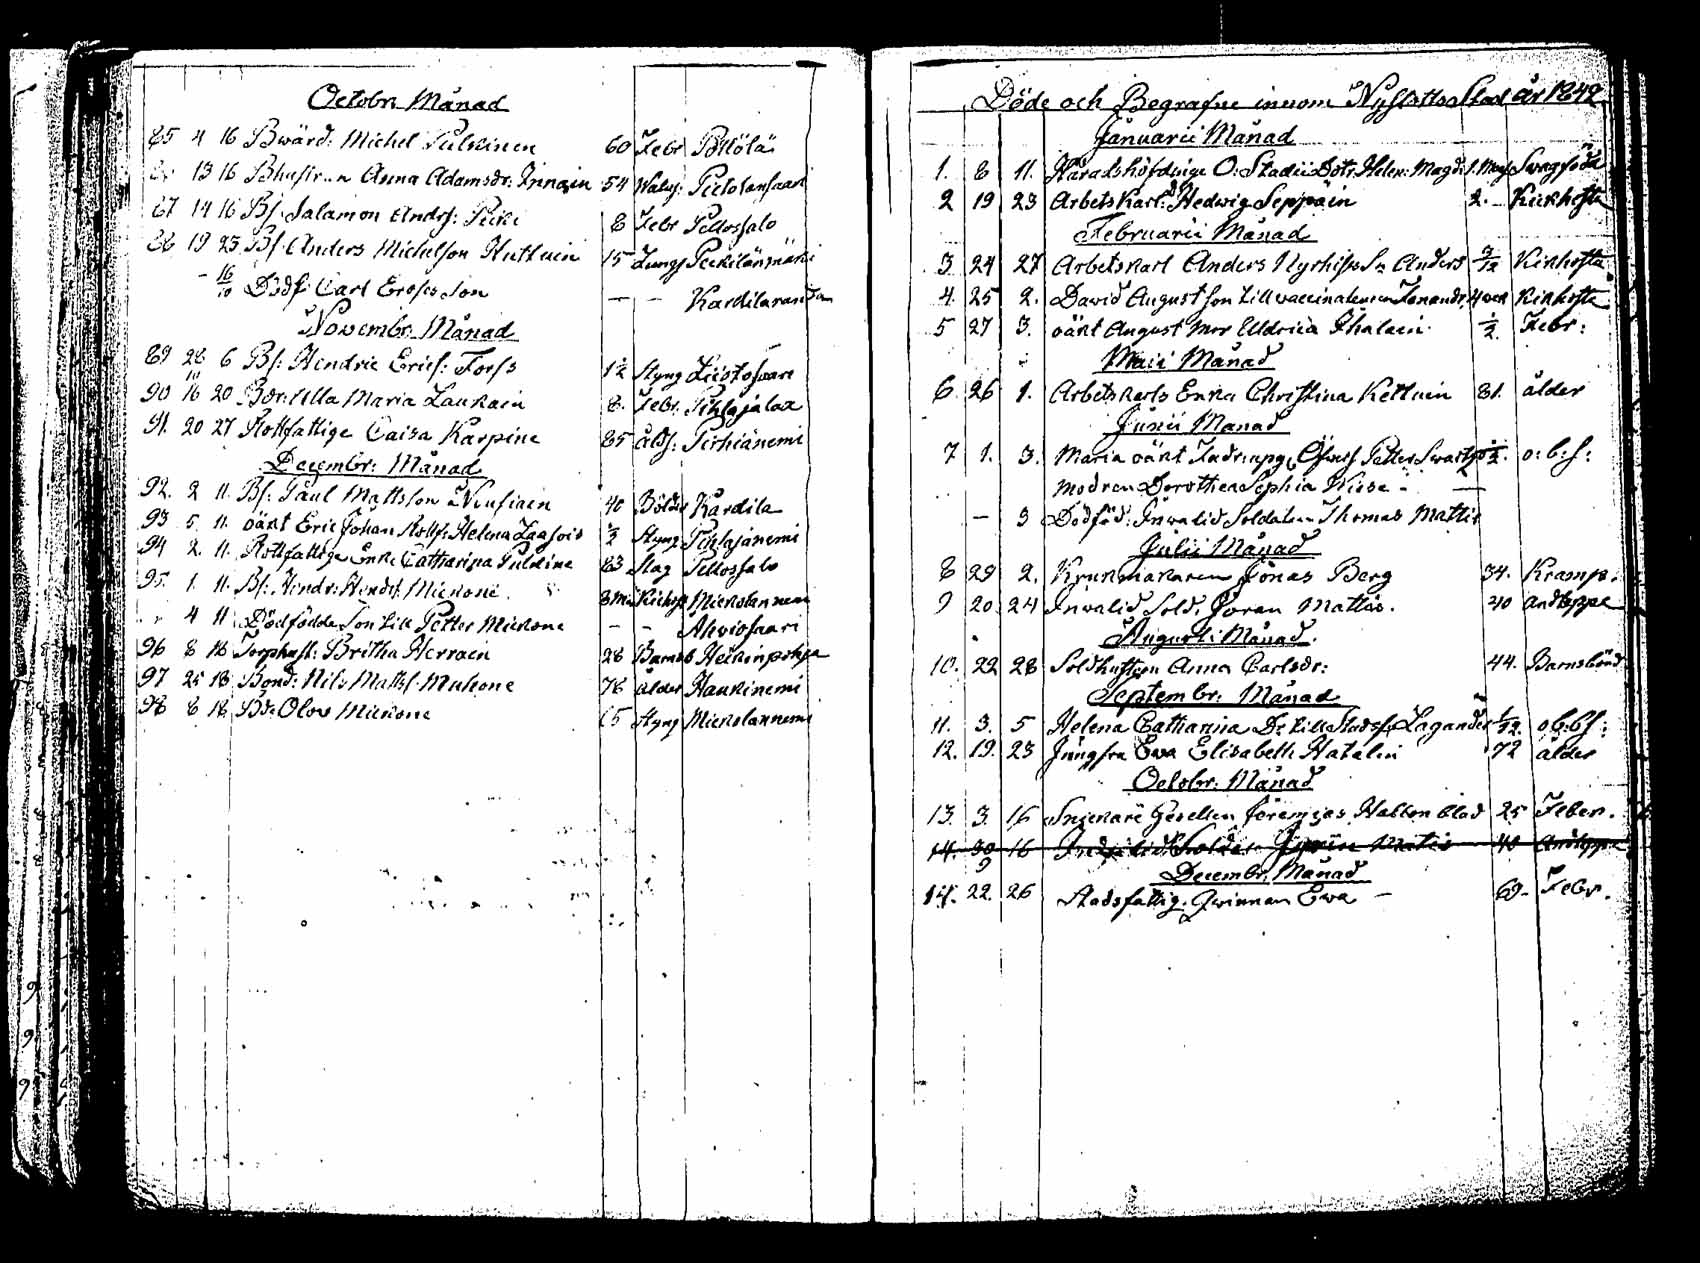 Octobr. Månad
85 4 16 Bwärd: Michel Pulkinen 60 Febr Pellölä
13 16 Bhustrun Anna Adamsdr: Innain 54 Pietolansaari
87 14 16 Bs: Salamon Andrs: Picki 8 Febr Pellossalo
88 19 23 Bs: Anders Michelson Kuttuin 15 Lungs
16/10 Dödf: Carl Erss Son — — Kardilaranda
Novembr. Månad
89 28 6 Bs: Hendric Erics: Forss 1½ Styng Liistosaari
90 16 20 Bdr: Ulla Maria Laukain 8. Febr. Pihlajalax
91. 20 27 Rottfattige Caisa Karpine 85 åld: Pirhiänemi
Decembr: Månad
92. 2 11. Bs: Påul Mattsson Nousiain 40 Bölder Kardila
93 5. 11. oäkt Eric Johan Rottf: Helena Laasois ½ Styng Pihlajanemi
94 2. 11. Rottfattige Enk: Catharina Pulkine 83 Slag Pellossalo
95. 1. 11. Bs: Hendr: Hendrs. Mickone 8 Kickh Mickolannemi
4 11 Dödfödde Son till Petter Mickone — — Ahviosaari
96 8 18 Torphust: Britha Herrain 28 Barnsb Heikinpohja
97 25 18 Bond: Nils Matts: Muhone 78 ålder Haukinemi
98 8 18 Bdr Olov Mickone 65 Styng Mickolannemi
Döde och Begrafne innom Nyslotts Stad år 1842
Januarii Månad
1. 8 11. Häradshöfdinge O: Stadii Dotr. Helen: Magd: Swagföda
2 19 23 Arbetskarl: Hedwig Seppäin 2. Kickhosta
Februarii Månad
3. 24 27 Arbetskarl Anders Nyrhises Sn Anders Kikhosta
4. 25 2. David August son till vaccinateuren 4 vek Kikhosta
5 27 3. oäkt August Mor Ulldrica Ihalain ½. Febr:
Maii Månad
6. 26 1. Arbetskarls Enka Christina Kettuin 81. ålder
Junii Månad
7 1. 3. Maria oäkt Petter Swartz ½. o: b: s:
modren Dorothea Sophia Wiese —
— 3 Dödföd: Invalid Soldaten Thomas Mattis
Julii Månad
8 29 2. Krukmakaren Jonas Berg 34. Kramp.
9 20. 24 Invalid Sold. Jöran Mattis. 40 Andtäppa
Augusti Månad.
10. 22 28 Soldhustrun Anna Carlsdr: 44. Barnsbörd
Septembr. Månad
11. 3. 5 Helena Catharina Dr till Stadsf: Lagander o b: b s:
12. 19. 23 Jungfru Ewa Elisabeth Hatalin 72 ålder
Octobr. Månad
13. 3. 16 Snickare Gesellen Jeremias Hallonblad 25 Feber.
14. 30/9 16 Invalid Soldn Jöran Matis 40 Andtäppa
Decembr. Månad
14. 22. 26 Stadsfattig: Qwinnan Ewa — 69 Febr.